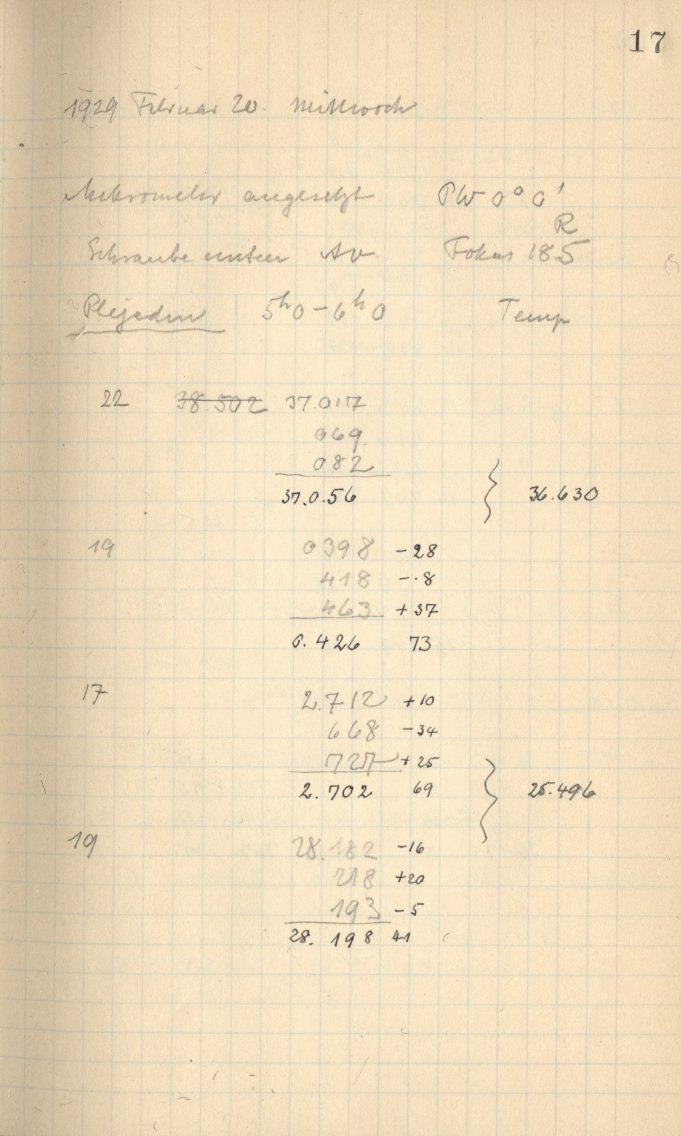 17
1929 Februar 20. Mittwoch
Mikrometer angesetzt PW 0° 0'
R
Schraube unten Av. Fokus 18.5
Plejaden 5h0 - 6h0 Temp
22 38.502 37.017
069
082
37.0.56 } 36.630
19 0398 -28
418 -.8
463 +37
0.426 73
17 2.712 +10
668 -34
727 +25
2.702 69 } 25.496
19 28.182 -16
218 +20
193 -5
28.198 41